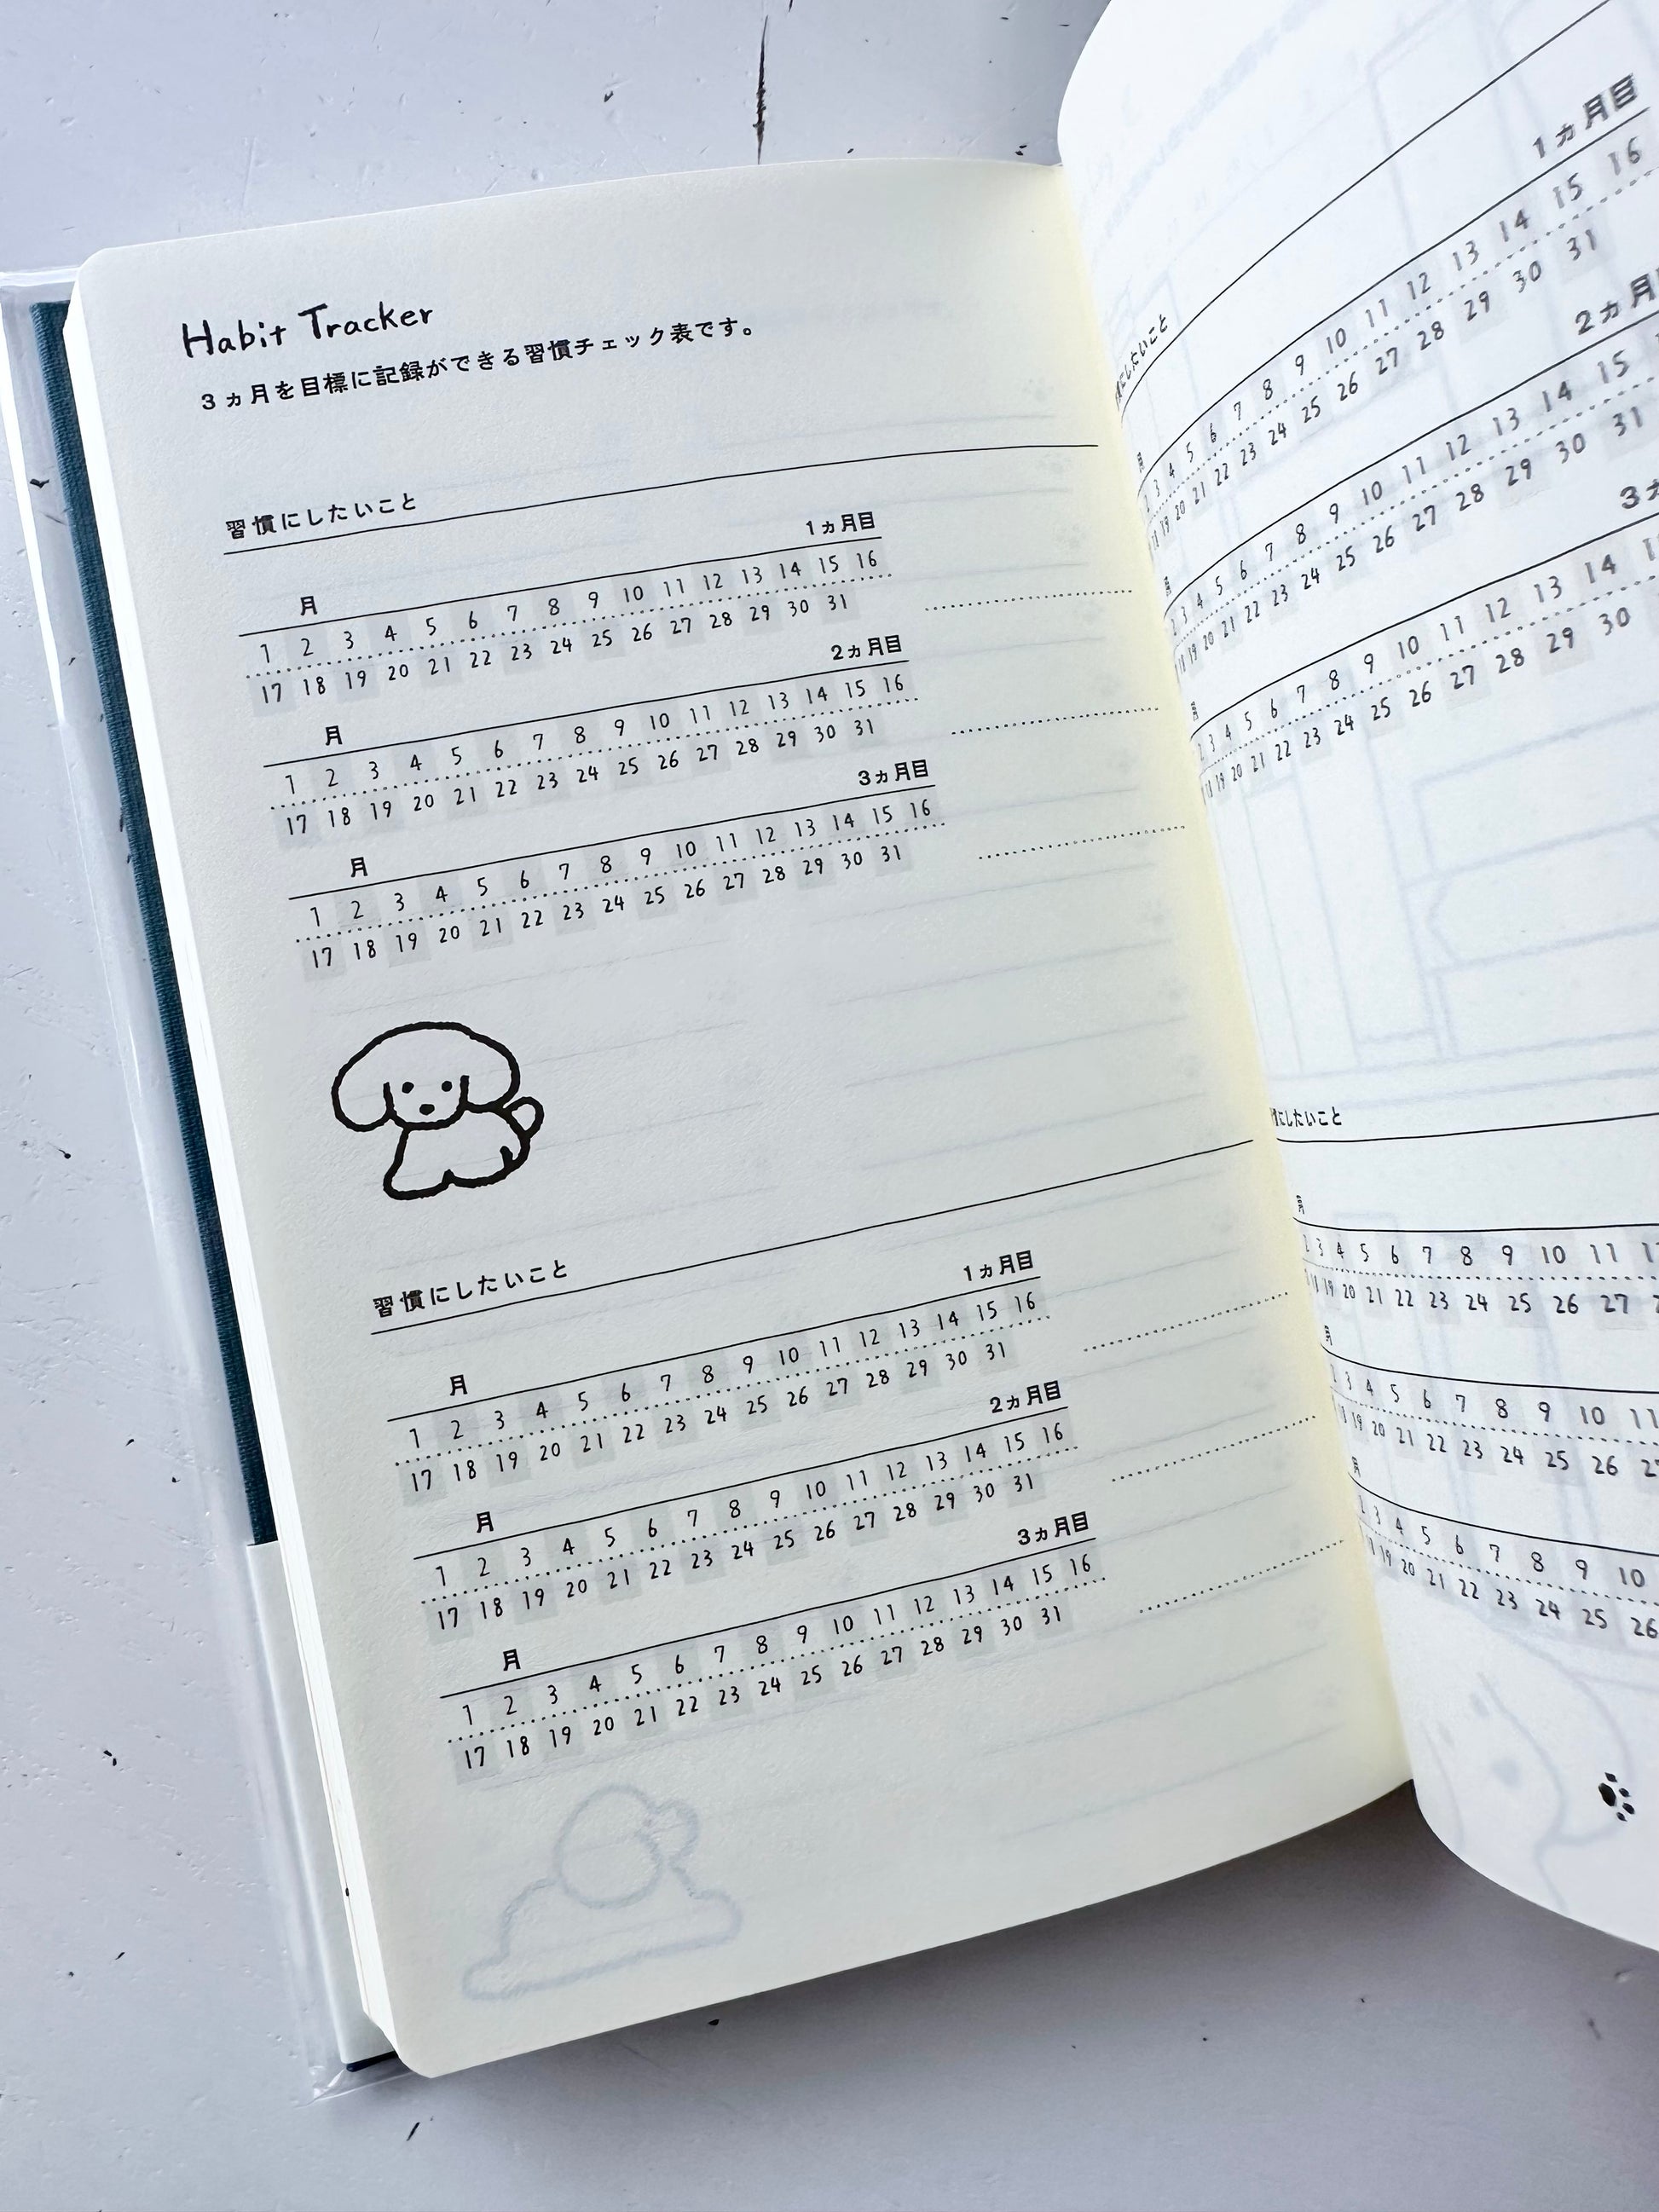 Habit Tracker
3ヵ月を目標に記録ができる習慣チェック表です。
習慣にしたいこと
1ヵ月目
月
1 2 3 4 5 6 7 8 9 10 11 12 13 14 15 16
17 18 19 20 21 22 23 24 25 26 27 28 29 30 31
2ヵ月目
月
1 2 3 4 5 6 7 8 9 10 11 12 13 14 15 16
17 18 19 20 21 22 23 24 25 26 27 28 29 30 31
3ヵ月目
月
1 2 3 4 5 6 7 8 9 10 11 12 13 14 15 16
17 18 19 20 21 22 23 24 25 26 27 28 29 30 31
習慣にしたいこと
1ヵ月目
月
1 2 3 4 5 6 7 8 9 10 11 12 13 14 15 16
17 18 19 20 21 22 23 24 25 26 27 28 29 30 31
2ヵ月目
月
1 2 3 4 5 6 7 8 9 10 11 12 13 14 15 16
17 18 19 20 21 22 23 24 25 26 27 28 29 30 31
3ヵ月目
月
1 2 3 4 5 6 7 8 9 10 11 12 13 14 15 16
17 18 19 20 21 22 23 24 25 26 27 28 29 30 31
にしたいこと
1ヵ月目
月
3 4 5 6 7 8 9 10 11 12 13 14 15 16
18 19 20 21 22 23 24 25 26 27 28 29 30 31
2ヵ月
月
2 3 4 5 6 7 8 9 10 11 12 13 14 15
18 19 20 21 22 23 24 25 26 27 28 29 30 31
3ヵ
月
2 3 4 5 6 7 8 9 10 11 12 13 14
18 19 20 21 22 23 24 25 26 27 28 29 30
にしたいこと
月
2 3 4 5 6 7 8 9 10 11
18 19 20 21 22 23 24 25 26 27
月
3 4 5 6 7 8 9 10 11
19 20 21 22 23 24 25 26
月
3 4 5 6 7 8 9 10
19 20 21 22 23 24 25 26